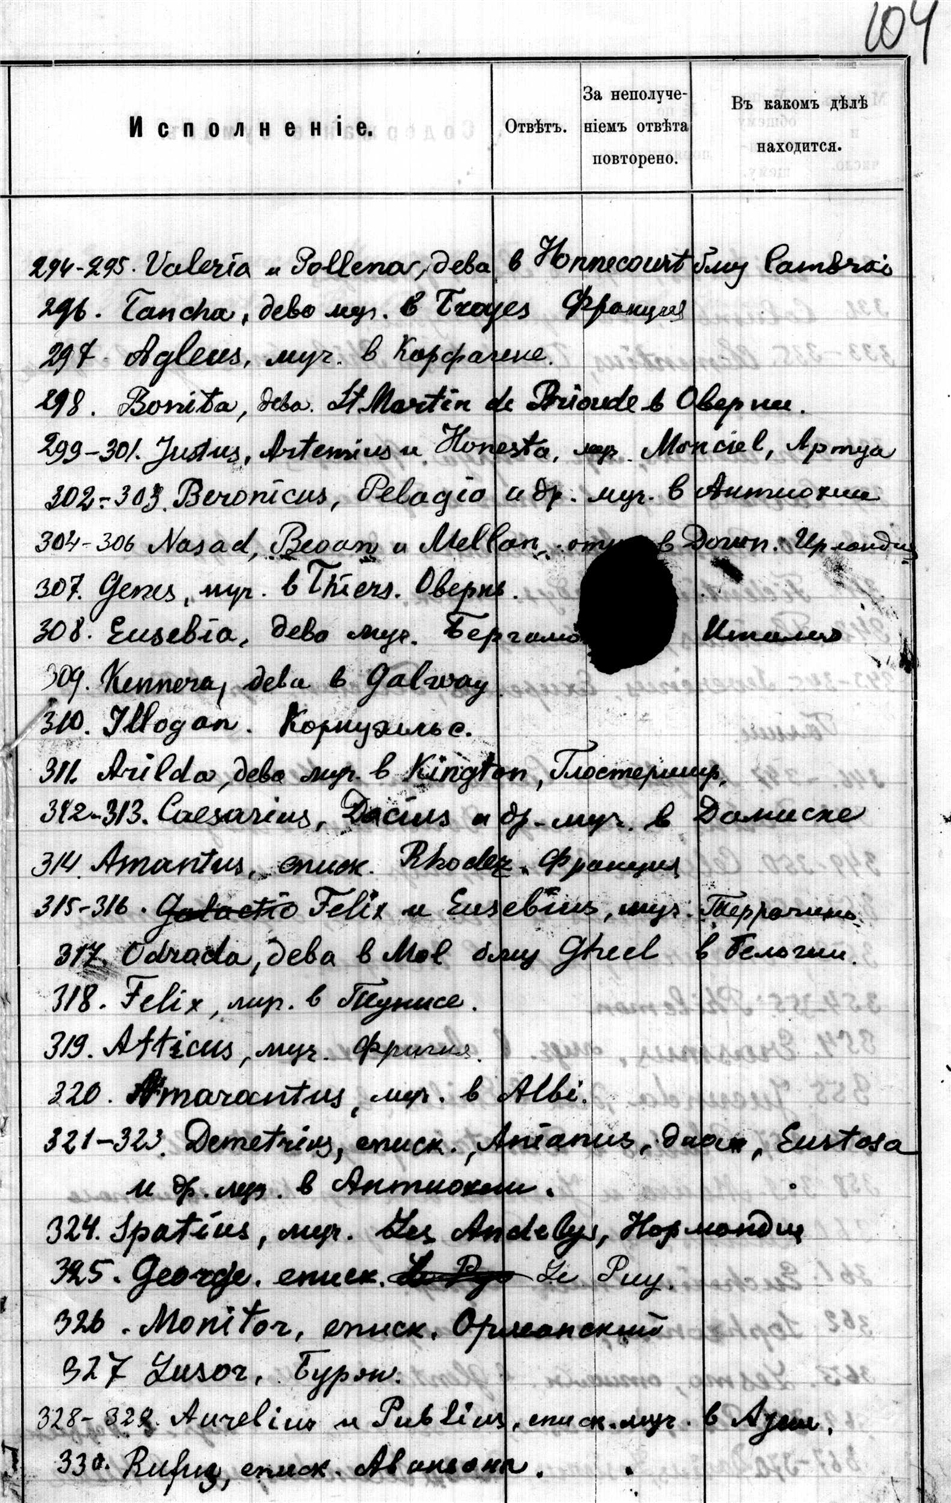 104
Исполненіе.
Отвѣтъ.
За неполуче-
ніемъ отвѣта
повторено.
Въ какомъ дѣлѣ
находится.
294-295. Valeria и Pollena, дева в Honnecourt близ Cambrai
296. Tancha, дева муч. в Troyes Франция
297. Agleus, муч. в Карфагене.
298. Bonita, дева. St Martin de Brioude в Оверни.
299-301. Justus, Artemius и Honesta, муч. Monciel, Артуа
302-303. Beronicus, Pelagio и др. муч. в Антиохии
304-306 Nasad, Beoan и Mellan, в Down. Ирландия
307. Genes, муч. в Thiers. Овернь.
308. Eusebia, дева муч. Бергамо Италия
309. Kennera, дева в Galway
310. Illogan. Корнуэльс.
311. Arilda, дева муч. в Kington, Глостершир.
312-313. Caesarius, Dacius и др. муч. в Дамаске
314. Amantus, еписк. Rhodez. Франция
315-316. Galactio Felix и Eusebius, муч. Террачина.
317. Odrada, дева в Mol близ Gheel в Бельгии.
318. Felix, мир. в Тунисе.
319. Atticus, муч. Фригия.
320. Amarantus, муч. в Albi.
321-323. Demetrius, еписк., Anianus, диак, Eustosa
и др. муч. в Антиохии.
324. Spatius, муч. Les Andelys, Нормандия
325. George. еписк. Le Puy Le Puy.
326. Monitor, еписк. Орлеанский
327 Lusor, Бурж.
328-329. Aurelius и Publius, еписк. муч. в Азии.
330. Rufus, еписк. Авиньона.